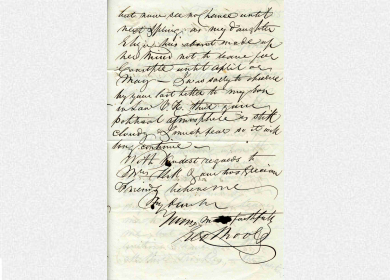 but now see no chance until
next Spring, as my daughter
Eliza has about made up
her mind not to leave for
until April or
May — I was sorry to observe
by your last letter to my son
in law that your
political atmosphere is still
cloudy & I much fear so it will
long continue —
With kindest regards to
Mrs
friends believe me
My dear Sir
Yours faithfully